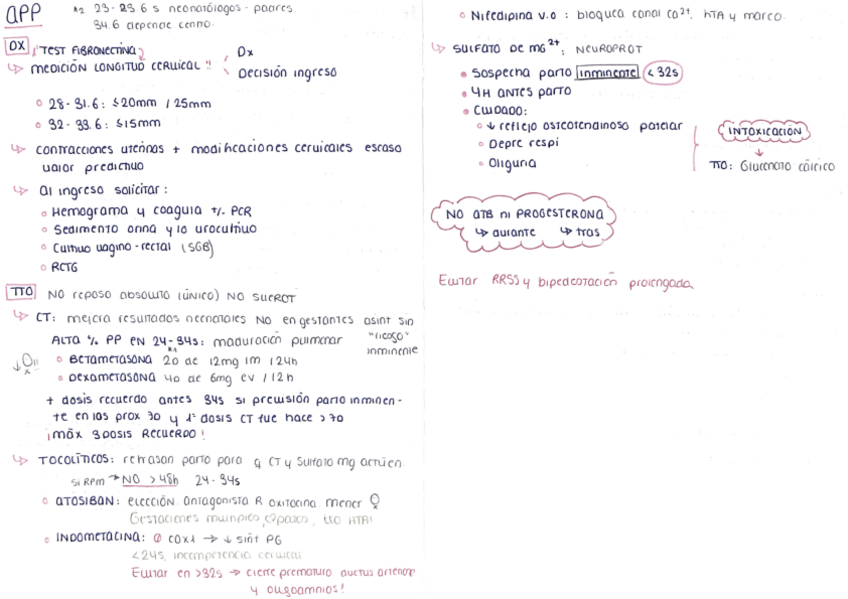 APP
*2 23-23.6 s neonatólogos - padres
34.6 depende centro.
DX
TEST FIBRONECTINA
↳ MEDICIÓN LONGITUD CERVICAL !!
DX
Decisión ingreso
○ 28-31.6: ≤20mm / 25mm
○ 32-33.6: ≤15mm
↳ contracciones uterinas + modificaciones cervicales escaso
valor predictivo
↳ Al ingreso solicitar:
○ Hemograma y coagula +/- PCR
○ Sedimento orina y/o urocultivo
○ Cultivo vagino-rectal (SGB)
○ RCTG
TTO
NO reposo absoluto (único) NO SUEROT
↳ CT: mejora resultados neonatales NO en gestantes asint sin
ALTA % PP EN 24-34s: maduración pulmonar
"riesgo"
inminente
*1
○ BETAMETASONA 2D de 12mg IM /24h
○ DEXAMETASONA 4D de 6mg ev /12h
+ dosis recuerdo antes 34s si previsión parto inminen-
te en los prox 7D y 1ª dosis CT fue hace >7D
¡máx 3DOSIS RECUERDO!
↳ TOCOLÍTICOS: retrasan parto para q CT y sulfato mg actúen
si RPM → NO >48h 24-34s
○ ATOSIBAN: elección. Antagonista R oxitocina. menor ♀
Gestaciones múltiples, cardiópatas, tto HTA!
○ INDOMETACINA: ⊘ COX1 → ↓ sínt PG
<24s, incompetencia cervical
Evitar en >32s → cierre prematuro ductus arterioso
y oligoamnios!
○ Nifedipina v.o: bloquea canal Ca²⁺. hTA y mareo.
↳ SULFATO DE MG²⁺: NEUROPROT
• Sospecha parto inminente <32s
• 4H ANTES PARTO
• CUIDADO:
○ ↓ reflejo osteotendinoso patelar
○ Depre respi
○ Oliguria
INTOXICACIÓN
↓
TTO: Gluconato cálcico
NO ATB ni PROGESTERONA
↳ durante ↳ tras
Evitar RRSS y bipedestación prolongada